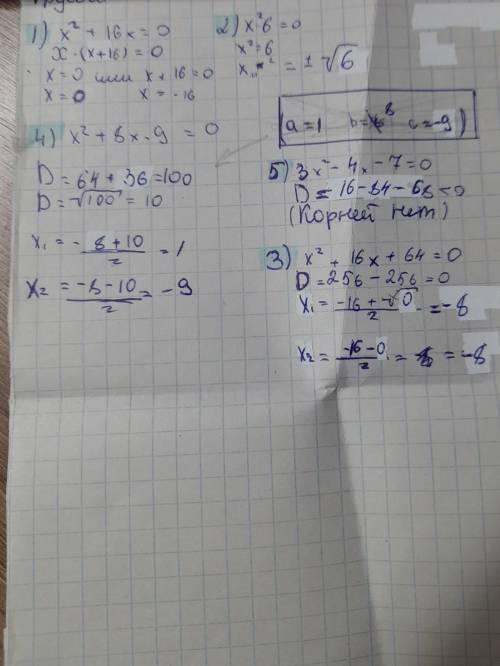 1) x² + 16x = 0
x · (x+16) = 0
x = 0 или x + 16 = 0
x = 0 x = -16
2) x² 6 = 0
x² = 6
= ± √6
(a = 1 b = 8 c = -9)
4) x² + 8x - 9 = 0
D = 64 + 36 = 100
D = √100 = 10
x₁ = - 8 + 10 / 2 = 1
x₂ = -8 - 10 / 2 = -9
5) 3x² - 4x - 7 = 0
D = 16 - 84 - 68 < 0
(Корней нет)
3) x² + 16x + 64 = 0
D = 256 - 256 = 0
x₁ = -16 + √0 / 2 = -8
x₂ = -16 - 0 / 2 = = -8